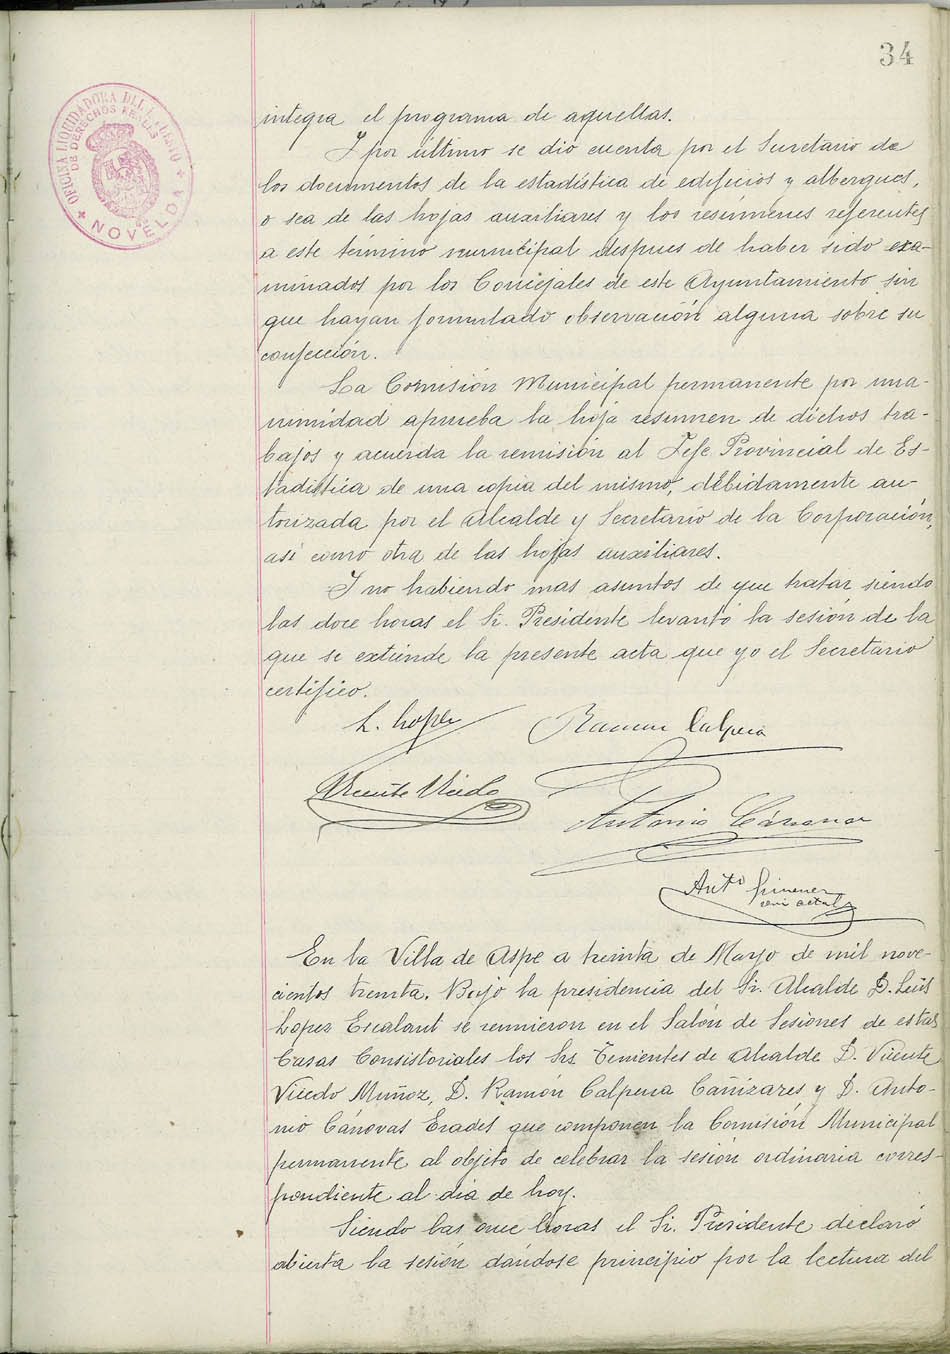 34
OFICINA LIQUIDADORA DEL
DE DERECHOS REALES
NOVELDA
integra el programa de aquellas.
Y por último se dió cuenta por el Secretario de
los documentos de la estadística de edificios y albergues,
o sea de las hojas auxiliares y los resúmenes referentes
a este término municipal despues de haber sido exa-
minados por los Concejales de este Ayuntamiento sin
que hayan formulado observación alguna sobre su
confección.
La Comisión Municipal permanente por una-
nimidad aprueba la hoja resumen de dichos tra-
bajos y acuerda la remisión al Jefe Provincial de Es-
tadística de una copia del mismo, debidamente au-
torizada por el Alcalde y Secretario de la Corporación,
así como otra de las hojas auxiliares.
Y no habiendo mas asuntos de que tratar siendo
las doce horas el Sr. Presidente levantó la sesión de la
que se extiende la presente acta que yo el Secretario
certifico.
L. Lopez Ramon Calpena
Vicente Vicedo
Antonio Cánovas
Antº Gimenez
En la Villa de Aspe a treinta de Mayo de mil nove-
cientos treinta. Bajo la presidencia del Sr. Alcalde D. Luis
Lopez Escalant se reunieron en el Salón de Sesiones de estas
Casas Consistoriales los Srs Tenientes de Alcalde D. Vicente
Vicedo Muñoz, D. Ramón Calpena Cañizares y D. Anto-
nio Cánovas Erades que componen la Comisión Municipal
permanente al objeto de celebrar la sesión ordinaria corres-
pondiente al dia de hoy.
Siendo las once horas el Sr. Presidente declaró
abierta la sesión dándose principio por la lectura del